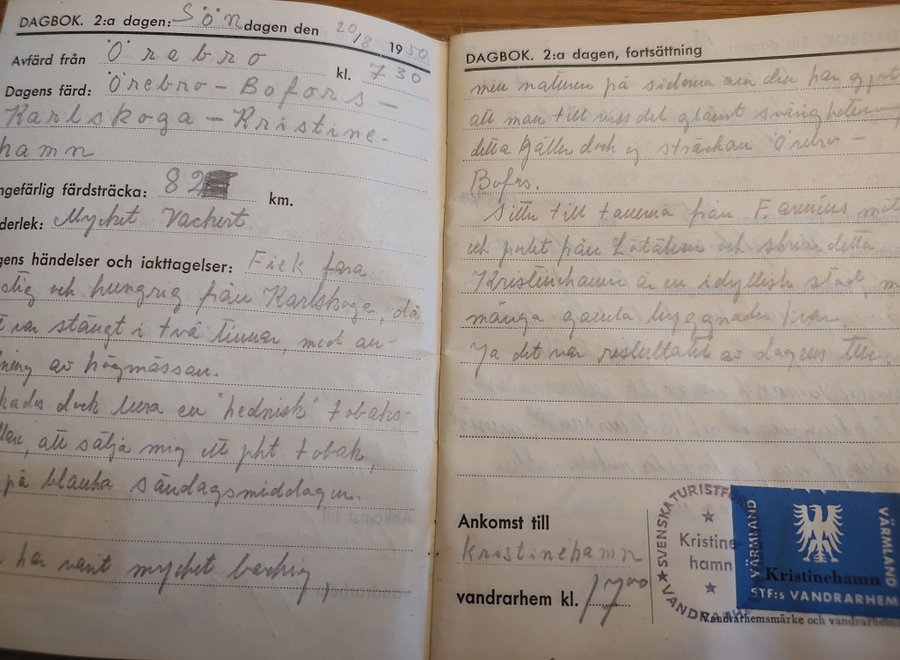 DAGBOK. 2:a dagen: Söndagen den 20/8 1950
Avfärd från Örebro kl. 7 30
Dagens färd: Örebro - Bofors -
Karlskoga - Kristine-
hamn
ngefärlig färdsträcka: 82 km.
derlek: Mycket Vackert
gens händelser och iakttagelser: Fick fara
stig och hungrig från Karlskoga, då
t var stängt i två timmar, med an-
ning av högmässan.
kades dock lura en "hednisk" tobaks-
att sälja mig ett pkt tobak,
på blanka söndagsmiddagen.
har varit mycket backig,
DAGBOK. 2:a dagen, fortsättning
men naturen på sidorna om den har gjort
att man till viss del glömt svårigheterna
detta gäller dock ej sträckan Örebro -
Bofrs.
Sitter till tonerna från
och pratet från och skriver detta.
Kristinehamn är en idyllisk stad, m
många gamla byggnader kvar.
Ja det var resultatet av dagens tur.
Ankomst till
Kristinehamn
vandrarhem kl. 17 00
SVENSKA TURISTF
Kristine-
hamn
VANDRARHEM
VÄRMLAND
VÄRMLAND
Kristinehamn
STF:s VANDRARHEM
Vandrarhemsmärke och vandrarhems